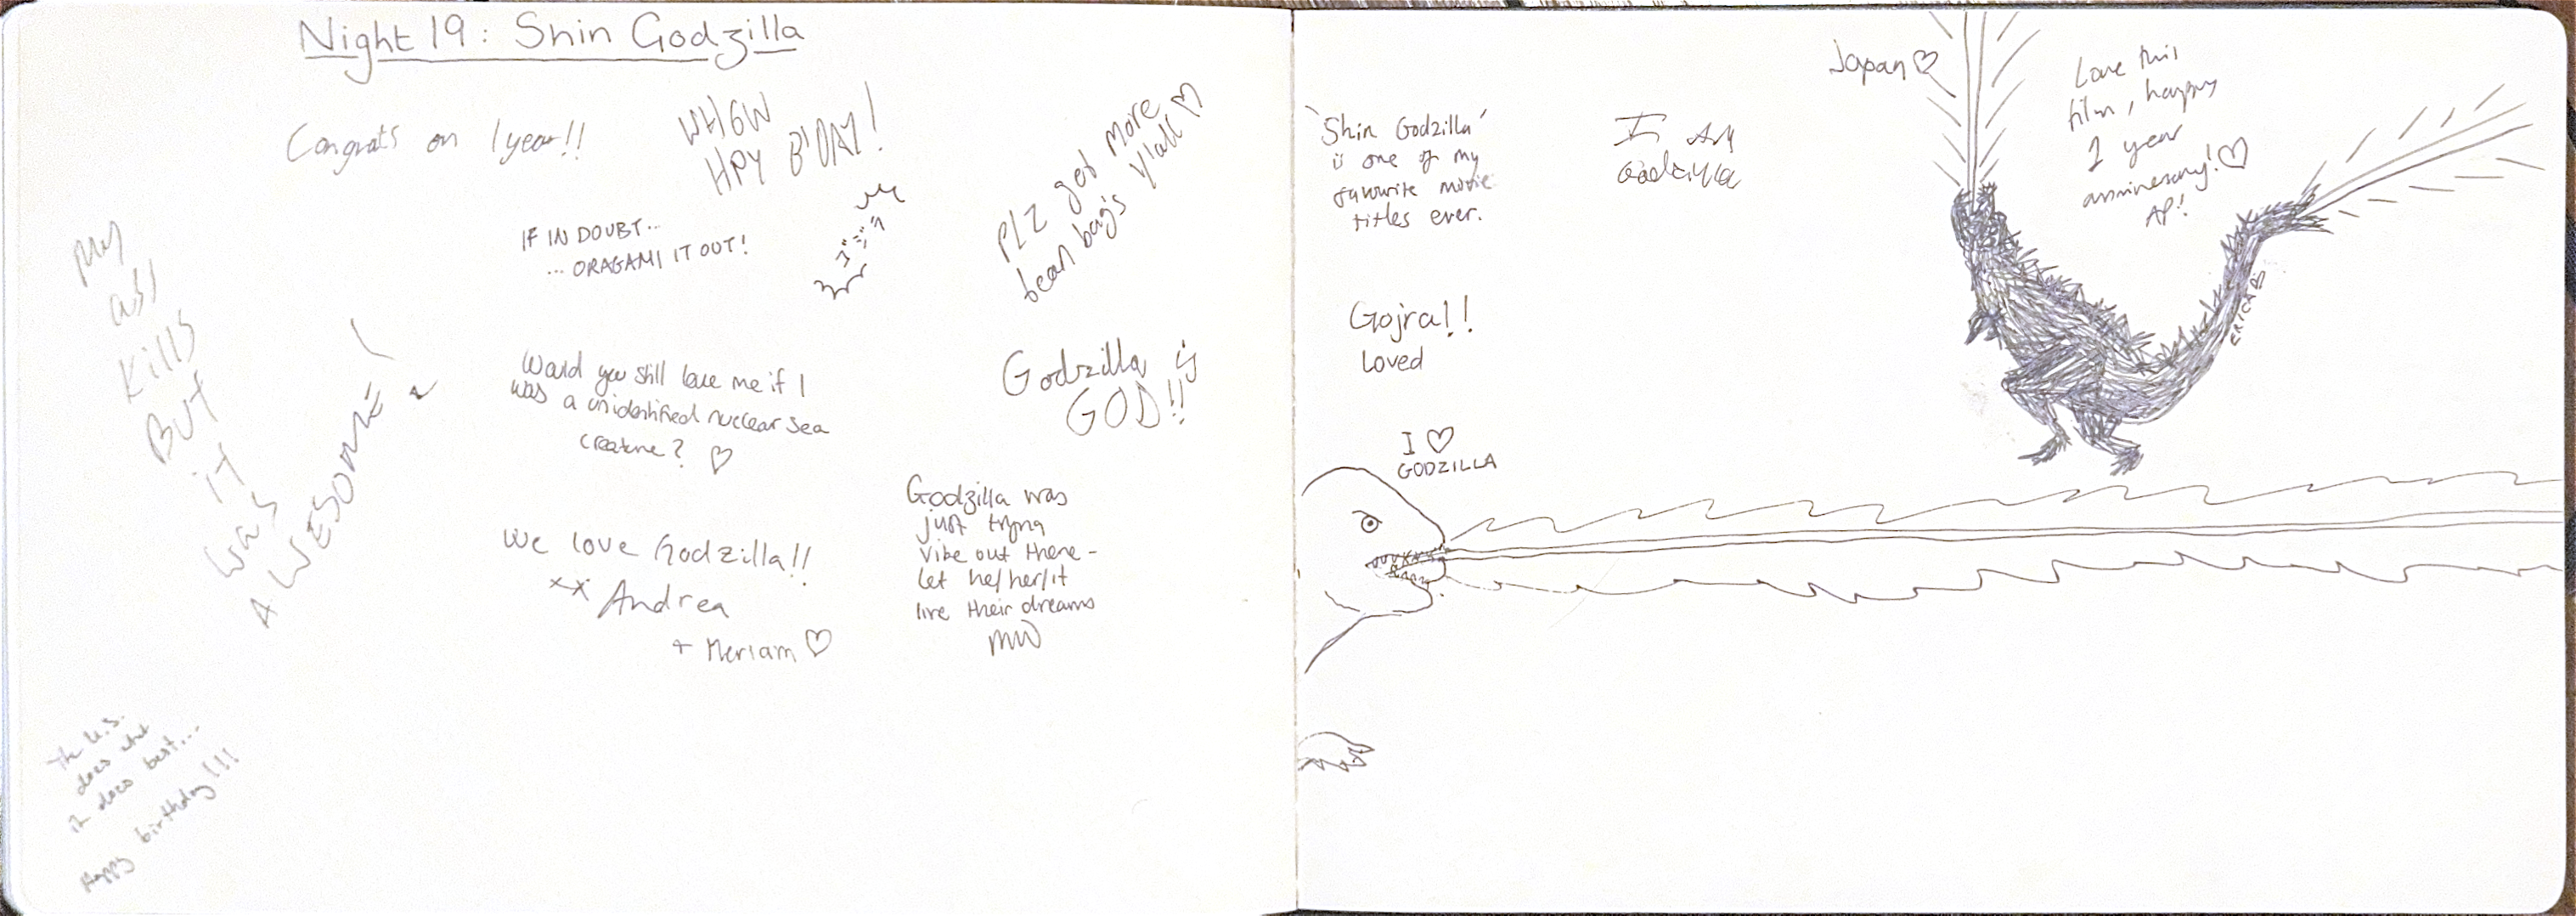 Night 19: Shin Godzilla
Congrats on 1 year!!
WHGW
HPY B'DAY!
PLZ get more
bean bag's Y'all ♡
IF IN DOUBT...
... ORAGAMI IT OUT!
My
ass
Kills
BUT
iT
was
AWESOME!
Would you still love me if I
was a unidentified nuclear sea
creature? ♡
Godzilla is
GOD!!
We love Godzilla!!
xx Andrea
+ Meriam ♡
Godzilla was
just trying
vibe out there -
let he/her/it
live their dreams
MW
The U.S.
does what
it does best...
Happy birthday!!!
'Shin Godzilla'
is one of my
favourite movie
titles ever.
I AM
Godzilla
Japan ♡
Love this
film, happy
1 year
anniversary! ♡
AP!
ERICA
Gojra!!
Loved
I ♡
GODZILLA